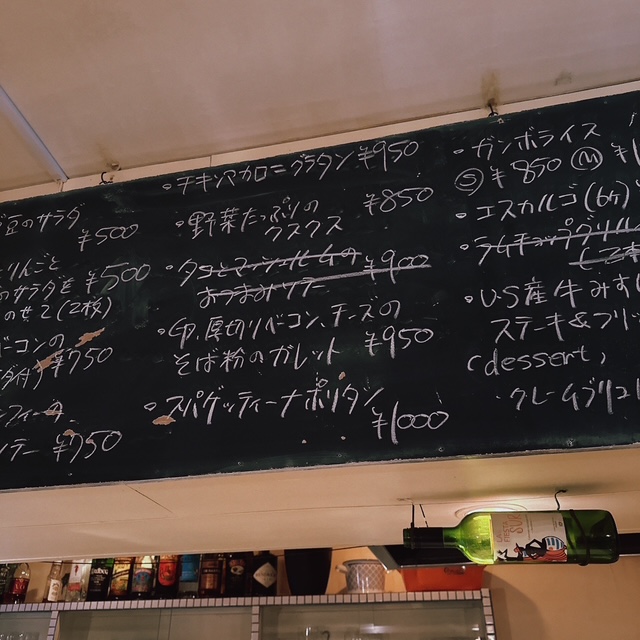 豆のサラダ
¥500
りんごと
のサラダを ¥500
のせて(2枚)
ベーコンの
ダ付) ¥750
ソテー ¥750
・チキンマカロニグラタン ¥950
・野菜たっぷりの ¥850
クスクス
・タコとマッシュルームの ¥900
おつまみソテー
・卵、厚切りベコン、チーズの
そば粉のガレット ¥950
・スパゲッティーナポリタン
¥1000
・ガンボライス
Ⓢ ¥850 Ⓜ ¥1
・エスカルゴ(6ヶ)
・ラムチョップグリル
・U.S産牛みすじ
ステーキ&フリッ
(dessert)
・クレームブリュレ